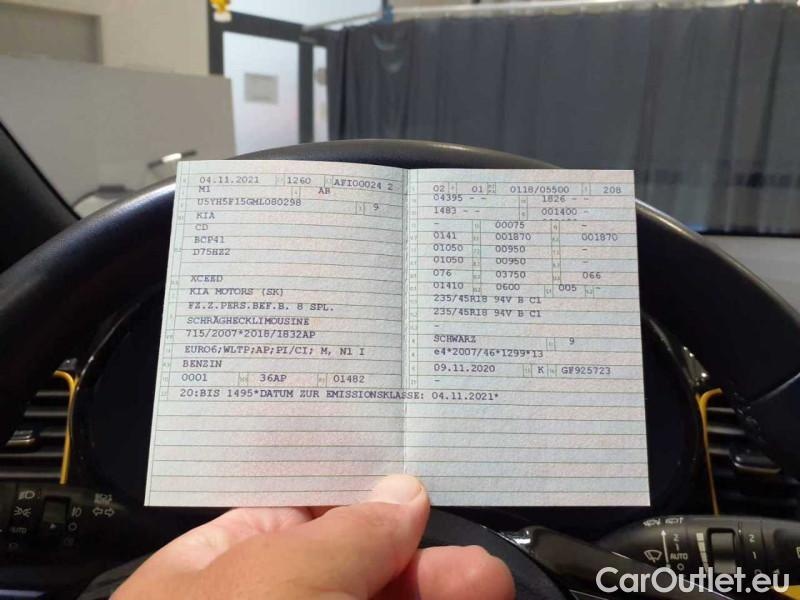 04.11.2021 1260 AFI00024 2
M1 AB
U5YH5F15GML080298 9
KIA
CD
BCP41
D75HZ2
XCEED
KIA MOTORS (SK)
FZ.Z.PERS.BEF.B. 8 SPL.
SCHRÄGHECKLIMOUSINE
715/2007*2018/1832AP
EURO6;WLTP;AP;PI/CI; M, N1 I
BENZIN
0001 36AP 01482
20:BIS 1495*DATUM ZUR EMISSIONSKLASSE: 04.11.2021*
02 01 0118/05500 208
04395 - - 1826 - -
1483 - - 001400 -
- 00075 -
0141 001870 001870
01050 00950 -
01050 00950 -
076 03750 066
01410 0600 005 -
235/45R18 94V B C1
235/45R18 94V B C1
-
SCHWARZ 9
e4*2007/46*1299*13
09.11.2020 K GF925723
-
AUTO
2
AUTO
0
2
1
0
CarOutlet.eu